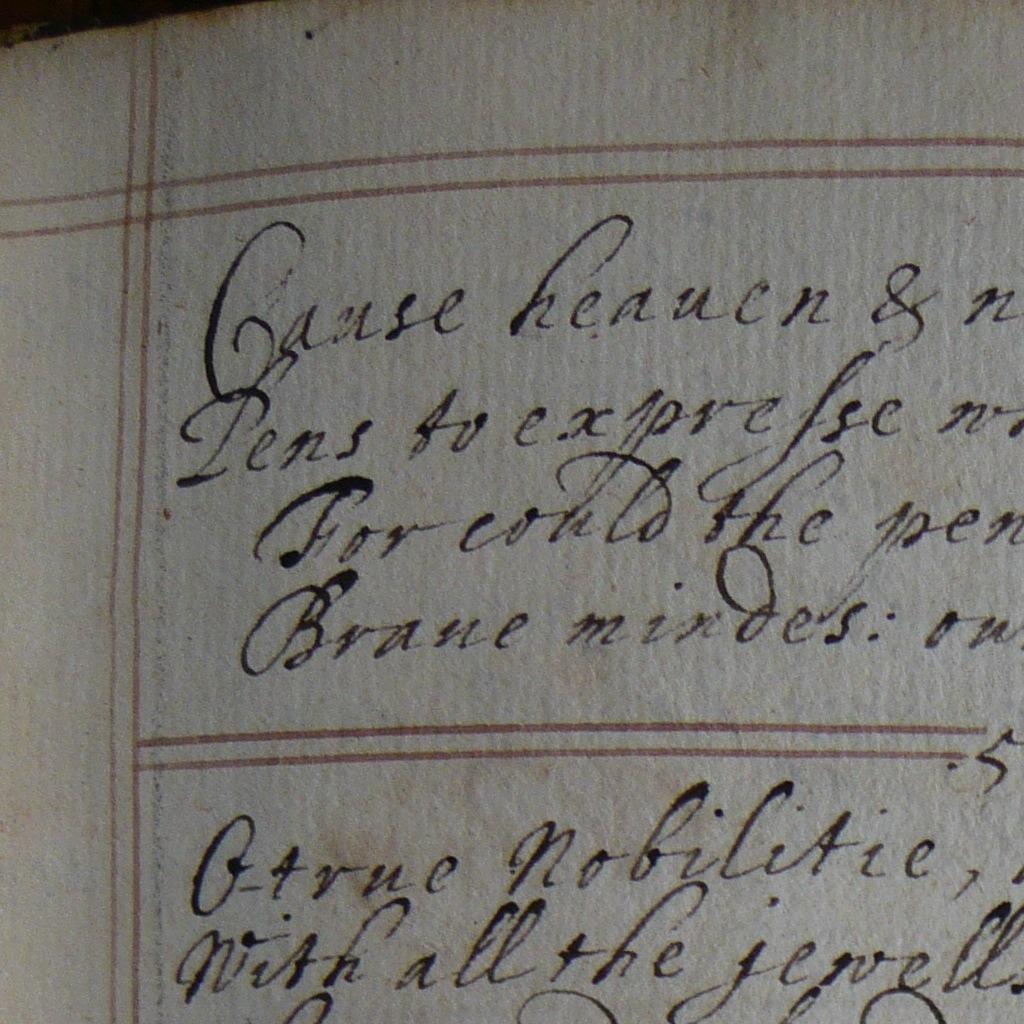 Cause heauen & n
Pens to expresse
For could the pen
Braue mindes: ou
.5
O true Nobilitie,
With all the jewells